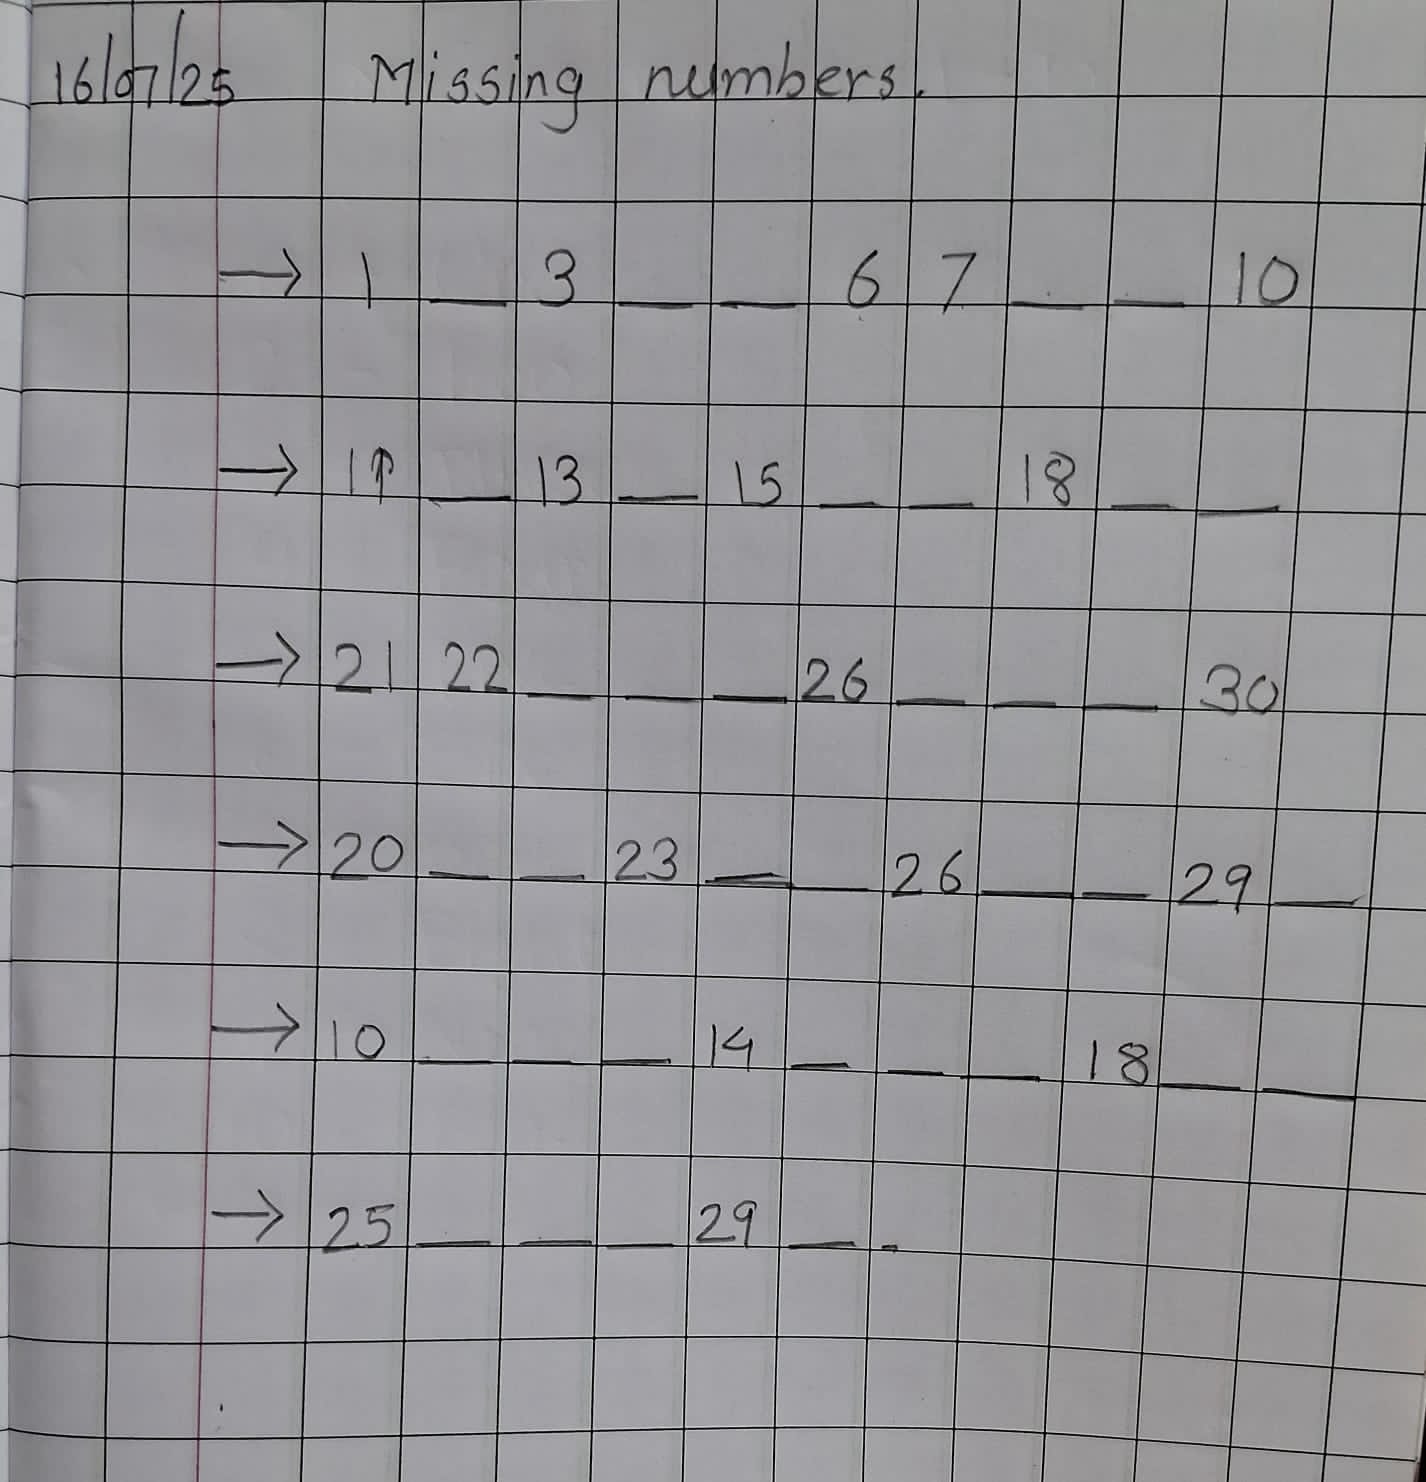 16/07/25 Missing numbers.
→ 1 _ 3 _ _ 6 7 _ _ 10
→ 11 _ 13 _ 15 _ _ 18 _ _
→ 21 22 _ _ _ 26 _ _ _ 30
→ 20 _ _ 23 _ _ 26 _ _ 29 _
→ 10 _ _ _ 14 _ _ _ 18 _ _
→ 25 _ _ _ 29 _ .